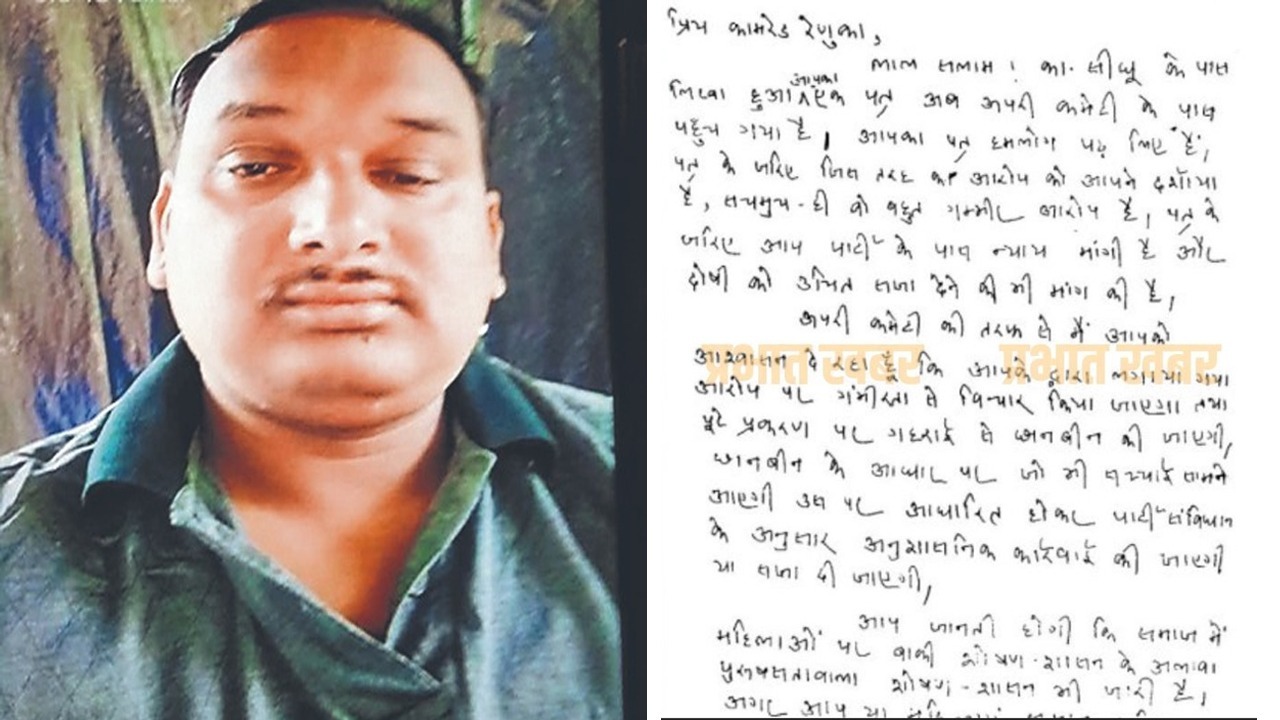 प्रिय कामरेड रेणुका,
लाल सलाम! का. सीधू के पास
लिखा हुआ आपका एक पत्र अब अपरी कमेटी के पास
पहुंच गया है, आपका पत्र हमलोग पढ़ लिए हैं,
पत्र के जरिए जिस तरह का आरोप को आपने दर्शाया
है, सचमुच-ही वो बहुत गम्भीर आरोप है, पत्र के
जरिए आप पार्टी के पास न्याय मांगी है और
दोषी को उचित सजा देने की भी मांग की है,
अपरी कमेटी की तरफ से मैं आपको
आश्वासन दे रहा हूँ कि आपके द्वारा लगाया गया
आरोप पर गंभीरता से विचार किया जाएगा तथा
पूरे प्रकरण पर गहराई से छानबीन की जाएगी,
छानबीन के आधार पर जो भी सच्चाई सामने
आएगी उस पर आधारित होकर पार्टी संविधान
के अनुसार अनुशासनिक कार्रवाई की जाएगी
या सजा दी जाएगी,
आप जानती होगी कि समाज में
महिलाओं पर बाकी शोषण-शासन के अलावा
पुरुषसत्तावाला शोषण-शासन भी जारी है,
अगर आप या
प्रभात खबर
प्रभात खबर